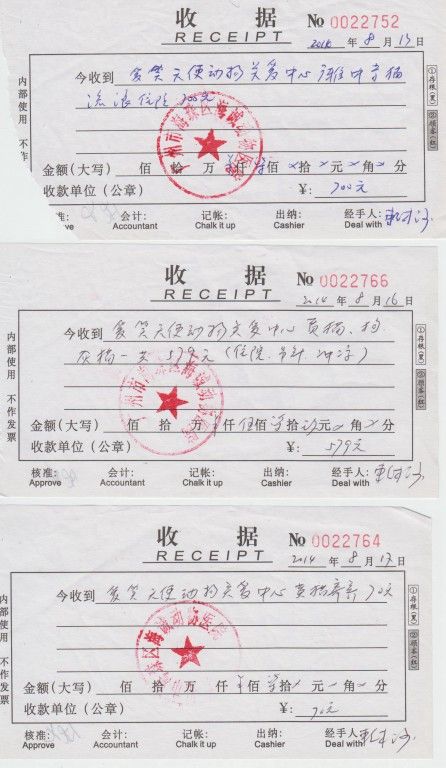 收据
RECEIPT
No 0022752
2014 年 8 月 13 日
今收到 爱笑天使动物关爱中心
流浪 住院 700元
金额(大写) 佰 拾 万 仟 佰 × 拾 × 元 × 角 × 分
收款单位(公章) ¥: 700元
核准: 会计: Accountant 记帐: Chalk it up 出纳: Cashier 经手人: Deal with
内部使用 不作
①存根(黑) ②顾客(红)
广州市海珠区海诚动物医院
收据
RECEIPT
No 0022766
2014 年 8 月 16 日
今收到 爱笑天使动物关爱中心 黄猫、
灰猫一 579元(住院、
金额(大写) 佰 拾 万 仟 佰 拾 元 角 分
收款单位(公章) ¥: 579元
核准: Approve 会计: Accountant 记帐: Chalk it up 出纳: Cashier 经手人: Deal with
内部使用 不作发票
①存根(黑) ②顾客(红)
广州市海珠区海诚动物医院
收据
RECEIPT
No 0022764
2014 年 8 月 17 日
今收到 爱笑天使动物关爱中心 黄猫寄养 70元
金额(大写) 佰 拾 万 仟 佰 拾 元 角 分
收款单位(公章) ¥: 70元
核准: Approve 会计: Accountant 记帐: Chalk it up 出纳: Cashier 经手人: Deal with
内部使用 不作发票
①存根(黑) ②顾客(红)
海珠区海诚动物医院